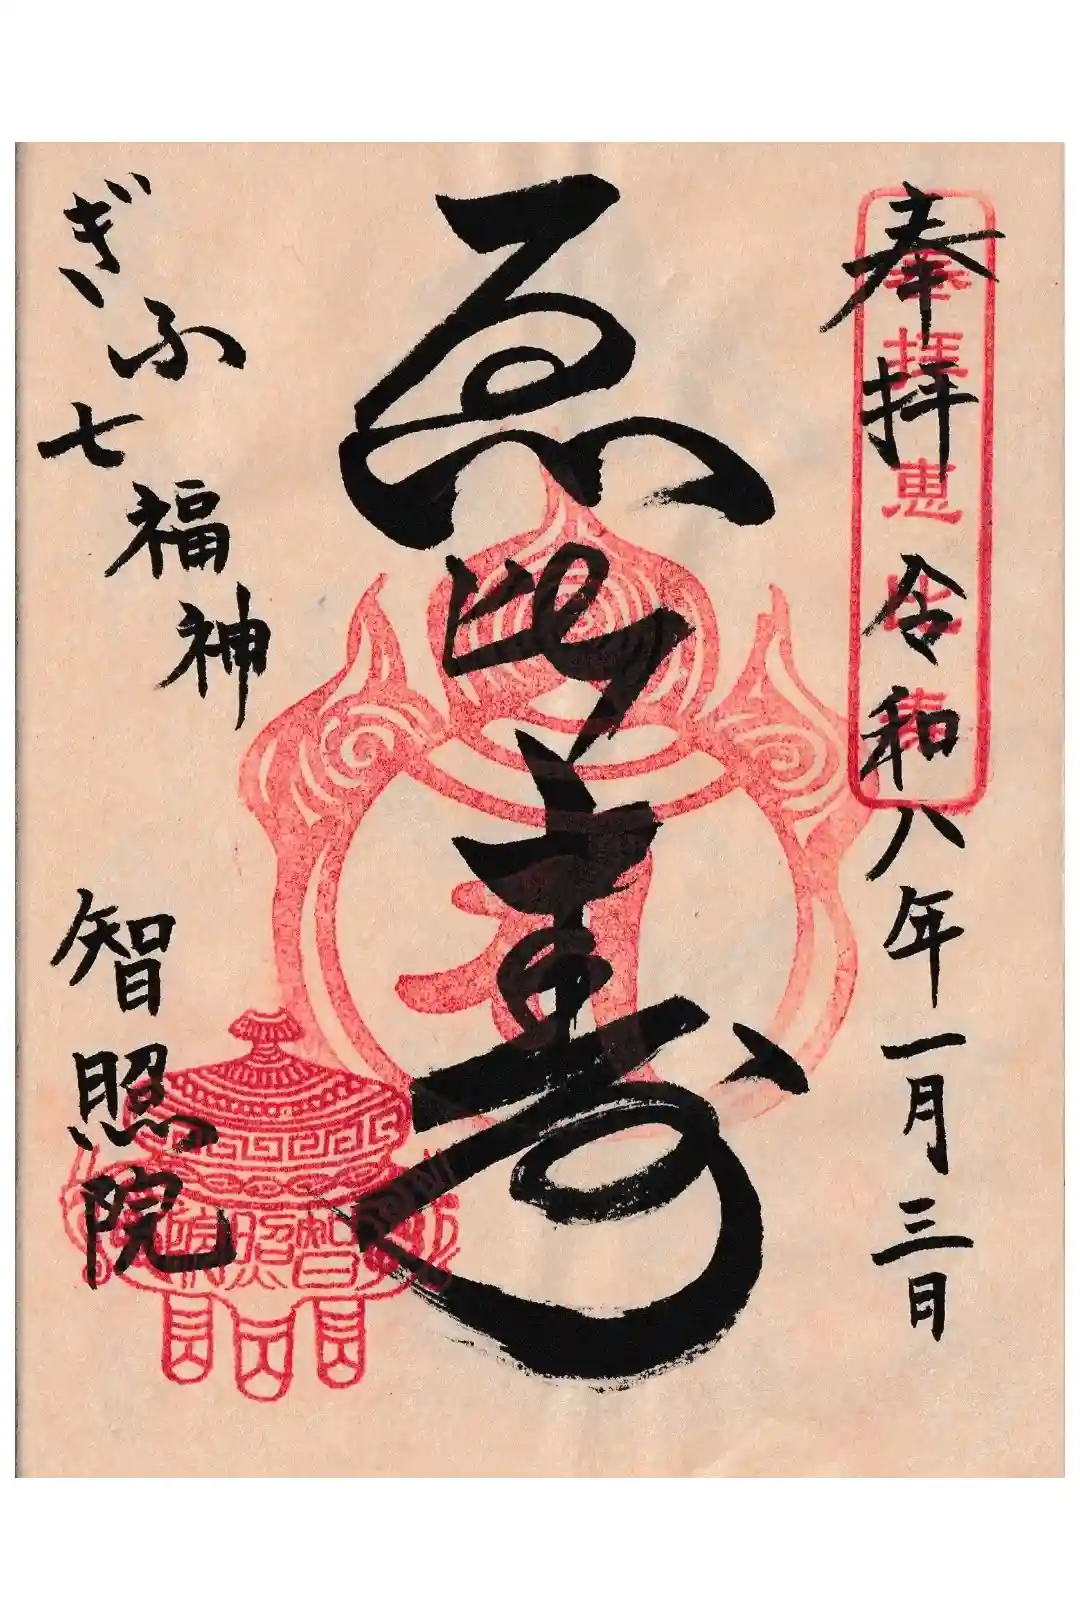 奉拝 令和八年一月三日
奉拝 恵比寿
恵比寿
ぎふ七福神
智照院
智照院